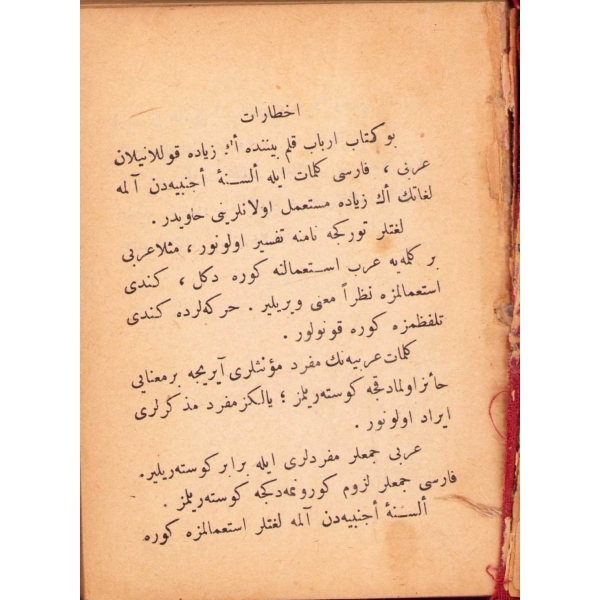 اخطارات
بو كتاب ارباب قلم بيننده اڭ زياده قوللانيلان
عربى ، فارسى كلمات ايله ألسـنۀ أجنبيه‌دن آلمه
لغاتك اڭ زياده مستعمل اولانلرينى حاويدر .
لغتلر توركجه نامنه تفسير اولونور ، مثلا عربى
بر كلمه‌يه عرب اسـتعمالنه كوره دكل ، كندى
استعمالمزه نظراً معنى ويريلير . حركه‌لرده كندى
تلفظمزه كوره قونولور .
كلمات عربيه‌نك مفرد مؤنثلرى آيريجه بر معنايى
حائز اولمادقجه كوسته‌ريلمز ؛ يالكز مفرد مذكرلرى
ايراد اولونور .
عربى جمعلر مفردلرى ايله برابر كوسته‌ريلير.
فارسى جمعلر لزوم كورونمه‌دكجه كوسته‌ريلمز .
ألسـنۀ أجنبيه‌دن آلمه لغتلر استعمالمزه كوره